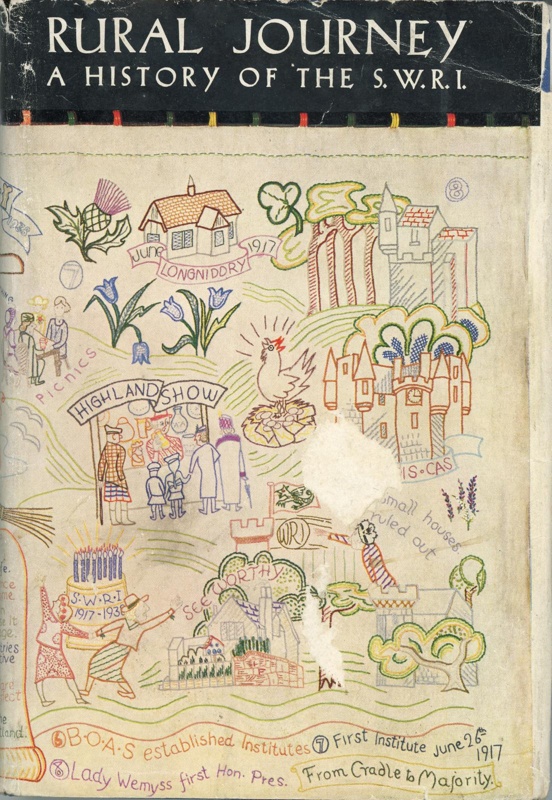 RURAL JOURNEY
A HISTORY OF THE S.W.R.I.
8
June 1917
LONGNIDDRY
7
PICNICS
HIGHLAND SHOW
IS·CAS
small houses
ruled out
WRI
S·W·R·I
1917-193
SEE WORTHY
6 B·O·A·S established Institutes
7 First Institute June 26th 1917
8 Lady Wemyss first Hon. Pres.
From Cradle to Majority.